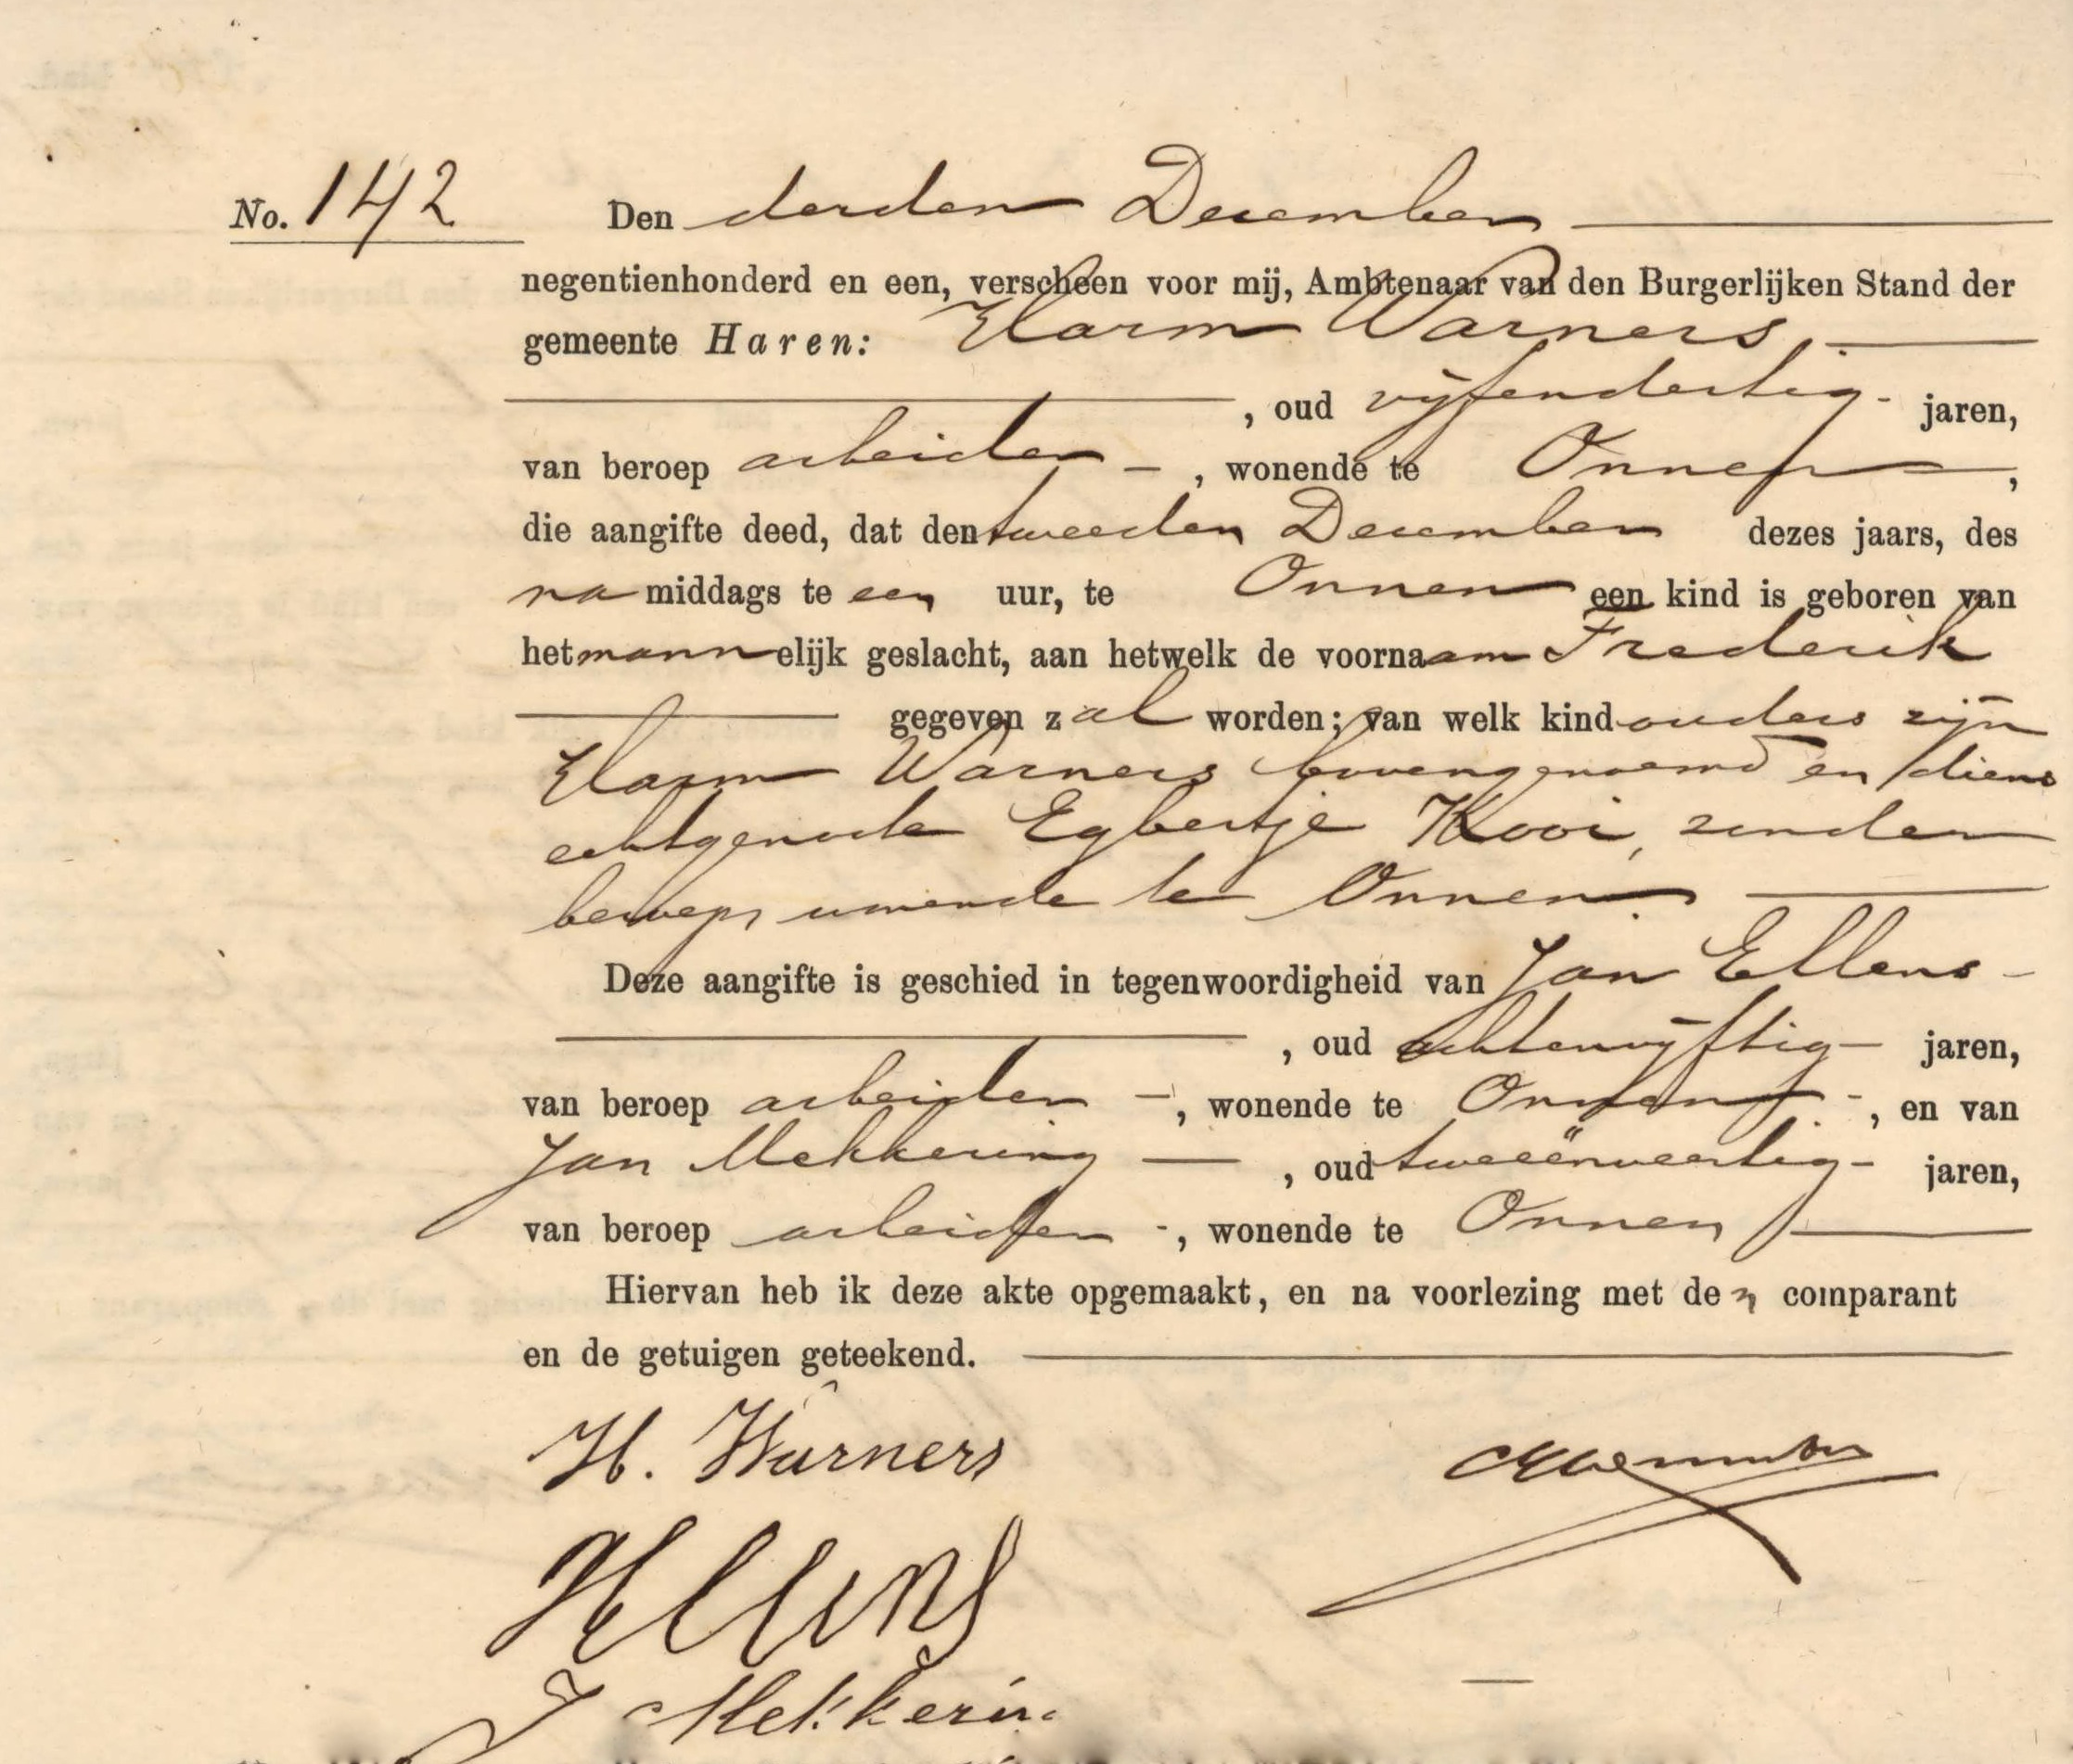 No. 142 Den derden December
negentienhonderd en een, verscheen voor mij, Ambtenaar van den Burgerlijken Stand der
gemeente Haren: Harm Warners
, oud vijfendertig - jaren,
van beroep arbeider - , wonende te Onnen ,
die aangifte deed, dat den tweeden December dezes jaars, des
na middags te een uur, te Onnen een kind is geboren van
het mannelijk geslacht, aan hetwelk de voornaam Frederik
gegeven zal worden; van welk kind ouders zijn
Harm Warners bovengenoemd en diens
echtgenoote Egbertje Kooi, zonder
beroep, wonende te Onnen.
Deze aangifte is geschied in tegenwoordigheid van Jan Ellens -
, oud achtenvijftig - jaren,
van beroep arbeider -, wonende te Onnen -, en van
Jan Mekkering — , oud tweeënveertig - jaren,
van beroep arbeider -, wonende te Onnen
Hiervan heb ik deze akte opgemaakt, en na voorlezing met den comparant
en de getuigen geteekend.
H. Warners
J Mekkerin